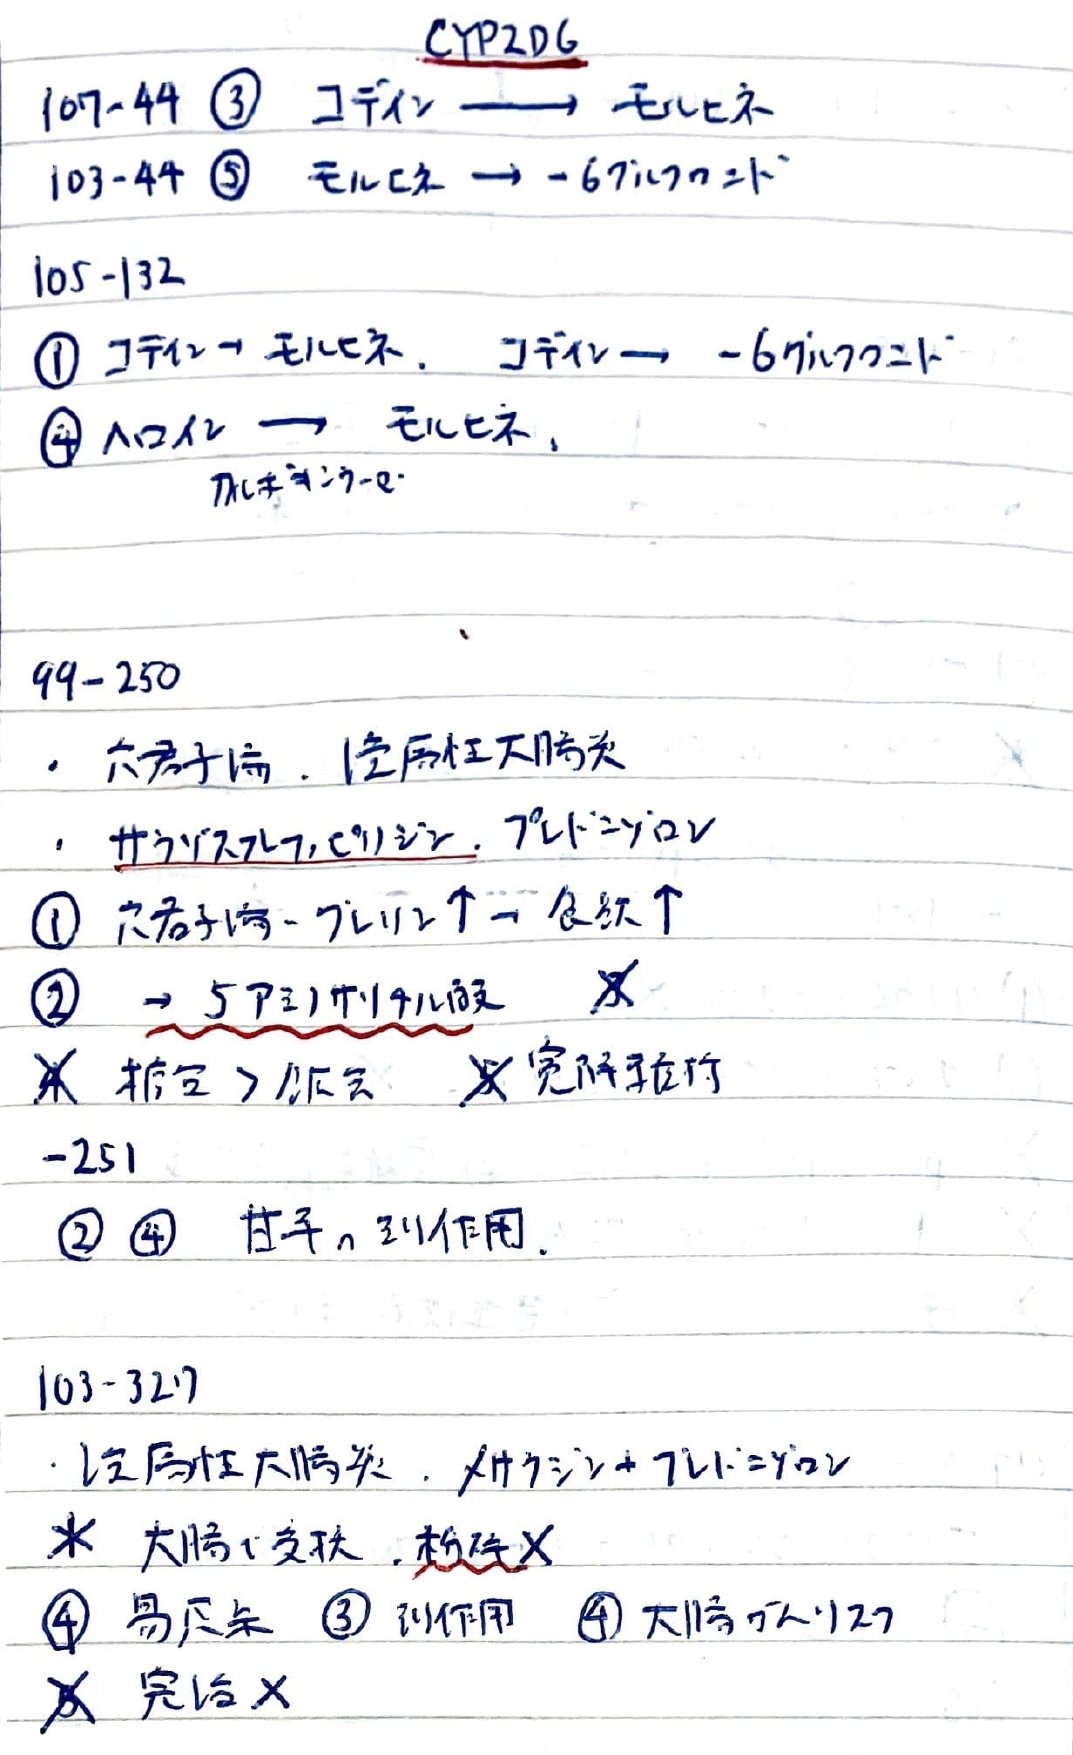 CYP2D6
107-44 ③ コデイン → モルヒネ
103-44 ⑤ モルヒネ → -6グルクロニド
105-132
① コデイン→モルヒネ. コデイン→ -6グルクロニド
④ ヘロイン → モルヒネ,
カルボキシラーゼ
99-250
・ 六君子湯. 潰瘍性大腸炎
・ サラゾスルファピリジン. プレドニゾロン
① 六君子湯-グレリン↑→食欲↑
② → 5アミノサリチル酸
> 寛解
-251
② ④ 甘草の副作用.
103-327
・潰瘍性大腸炎. メサラジン+プレドニゾロン
大腸で . 粉砕×
④ 易 ③ 副作用 ④ 大腸がんリスク
完治×